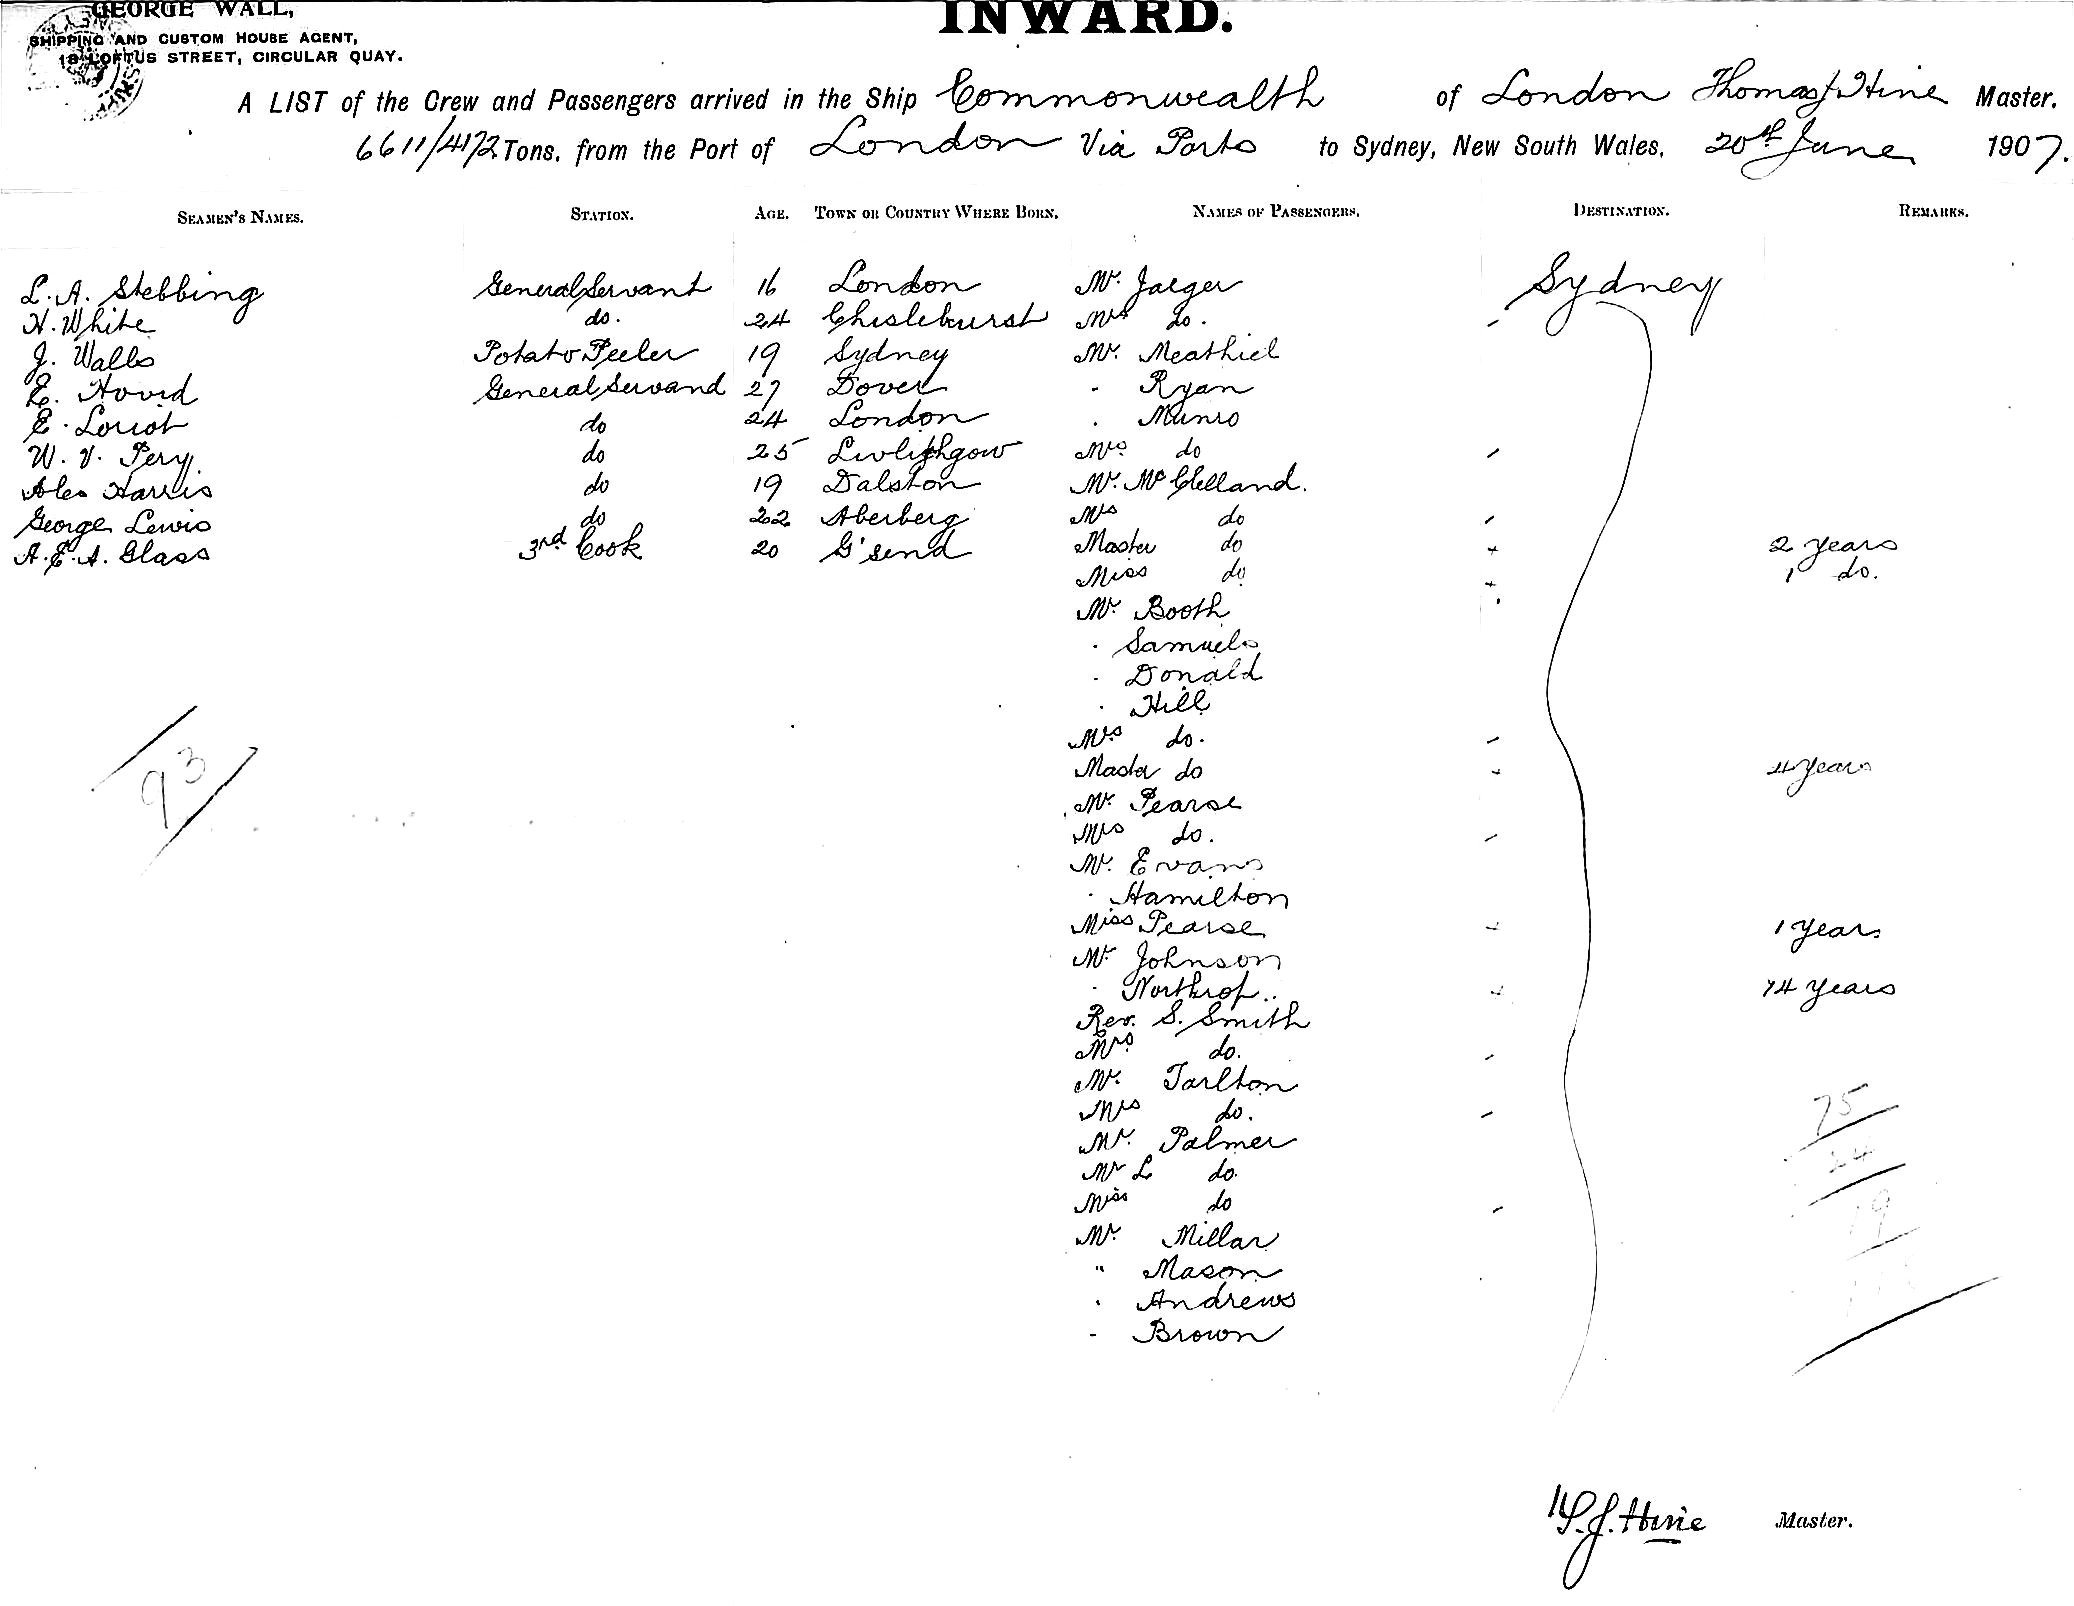 GEORGE WALL,
SHIPPING AND CUSTOM HOUSE AGENT,
18 LOFTUS STREET, CIRCULAR QUAY.
INWARD.
A LIST of the Crew and Passengers arrived in the Ship Commonwealth of London Thomas J Hine Master.
6611/4172 Tons, from the Port of London Via Ports to Sydney, New South Wales, 20th June 1907.
SEAMEN'S NAMES. STATION. AGE. TOWN OR COUNTRY WHERE BORN. NAMES OF PASSENGERS. DESTINATION. REMARKS.
L. A. Stebbing General Servant 16 London Mr. Jaeger Sydney
H. White do. 24 Chislehurst Mrs do.
J. Walls Potato Peeler 19 Sydney Mr. Meathiel
E. Hovid General Servand 27 Dover - Ryan
E. Loriot do 24 London . Munro
W. V. Pery. do 25 Mrs do
Alex Harris do 19 Dalston Mr. McClelland.
George Lewis do 22 Aberberg Mrs do
A. E. A. Glass 3rd Cook 20 G'send Master do 2 years
Miss do 1 do.
Mr. Booth
. Samuels
- Donald
. Hill
Mrs do.
Master do 4 years
Mr. Pearse
Mrs do.
Mr. Evans
. Hamilton
Miss Pearse 1 years
Mr Johnson
. Northrop.. 14 years
Rev. S. Smith
Mrs do.
Mr. Tarlton
Mrs do.
Mr. Palmer
Mr L do.
Miss do
Mr. Millar
" Mason
. Andrews
- Brown
93
75
24
19
T. J. Hine Master.